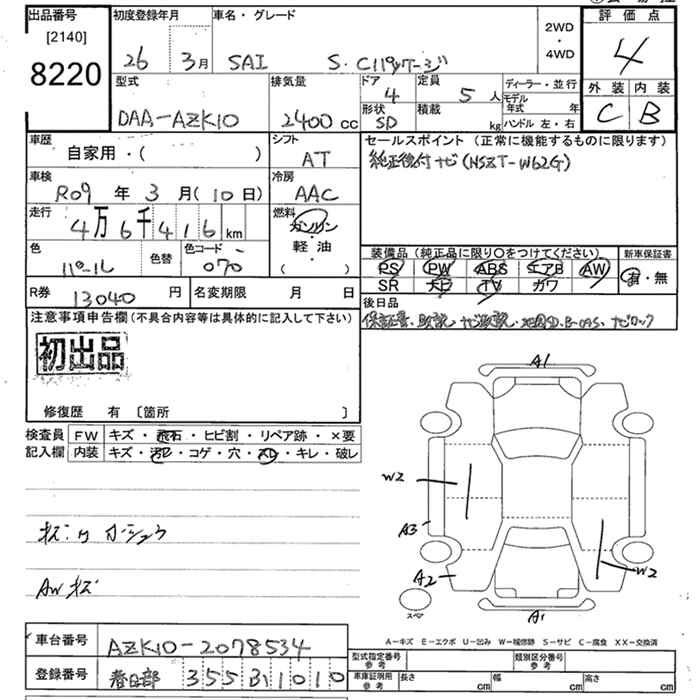 出品番号 初度登録年月 車名・グレード 2WD・4WD 評価点
[2140]
8220 26 3月 SAI S・Cパッケージ 4
型式 排気量 ドア 4 定員 5人 ディーラー・並行 外装 内装
DAA-AZK10 2400 cc 形状 SD 積載 kg モデル年式 年 C B
ハンドル 左・右
車歴 シフト セールスポイント (正常に機能するものに限ります)
自家用・( ) AT 純正後付ナビ(NSZT-W62G)
車検 冷房
R09 年 3 月(10日) AAC
走行 燃料
4万6千416 km ガソリン
色 色替 色コード 軽・油 装備品 (純正品に限り○をつけてください) 新車保証書
パール 070 ( ) PS PW ABS エアB AW 有・無
SR ナビ TV カワ
R券 13040 円 名変期限 月 日 後日品
注意事項申告欄(不具合内容等は具体的に記入して下さい) 保証書、取説、ナビ取説、地図SD、B-CAS、ナビロック
初出品
修復歴 有 〔箇所 〕
検査員 FW キズ・飛石・ヒビ割・リペア跡・×要
記入欄 内装 キズ・汚レ・コゲ・穴・スレ・キレ・破レ
A1
W2
A3
A2
W2
A1
スペア
AWキズ
A-キズ E-エクボ U-凹み W-補修跡 S-サビ C-腐食 XX-交換済
車台番号 AZK10-2078534 型式指定番号 参考 類別区分番号 参考
登録番号 春日部 355 ひ 1010 車庫証明用 参考 長さ cm 幅 cm 高さ cm